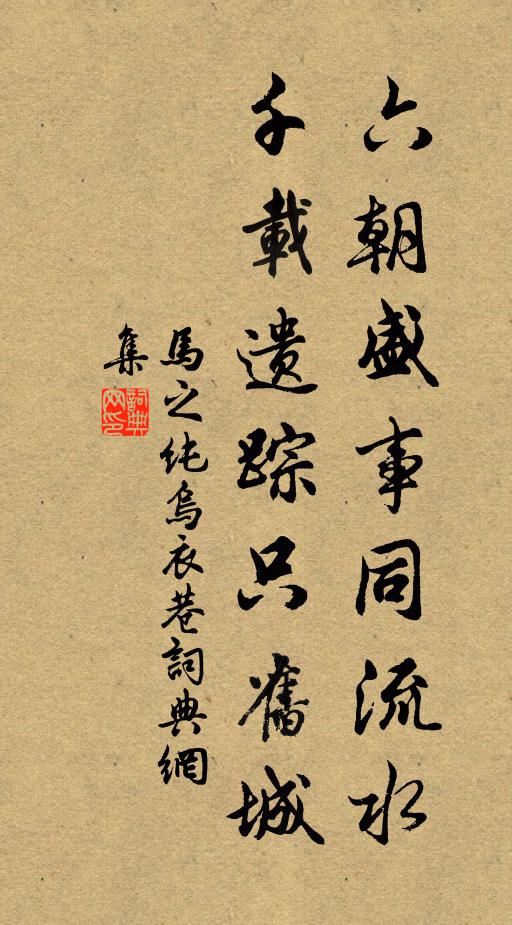 六朝盛事同流水
千載遗踪只舊城
馬之纯烏衣巷詞典網
集
詞典网印